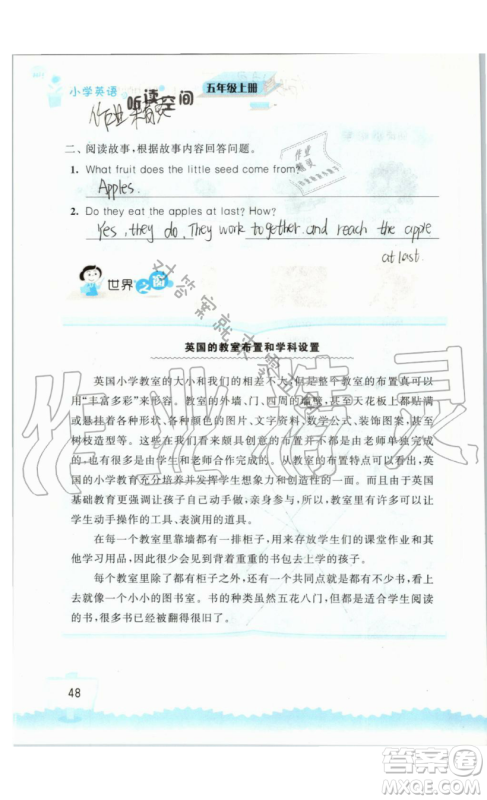 小学英语
听读空间
五年级上册
作业精灵
二、阅读故事，根据故事内容回答问题。
1. What fruit does the little seed come from?
Apples.
作业精灵
2. Do they eat the apples at last? How?
Yes, they do. They work together and reach the apple
at last.
世界之窗
对答案就来零五网
英国的教室布置和学科设置
英国小学教室的大小和我们的相差不大，但是整个教室的布置真可
以用“丰富多彩”来形容。教室的外墙、门、四周的墙壁，甚至天花板上都
挂着各种形状、各种颜色的图片、文字资料、数学公式、装饰图案，甚至
树枝造型等等。这些看起来颇具创意的布置不但有由老师单独完成
的，也有由学生和老师合作完成的。从教室的布置特点可以看出，英
国的小学教育充分培养并发挥学生想象力和创造性的一面。而且由于英国
基础教育更强调孩子自己动手，亲身参与，所以，教室里有许多可以让
学生动手操作的工具、表演用的道具。
在每一个教室里靠墙都有柜子，用来存放学生们的课堂作业和其
他学习用品，因此，很少会见到背着重重的书包去上学的孩子。
每个教室里除了都有柜子之外，还有一个共同点就是都有像我们
的教室一样的一个小小的图书室。书的种类虽然五花八门，但都是适合学生阅读
的书，很多书已经被翻得很旧了。
48
作业精灵
答案圈
MXQE.COM